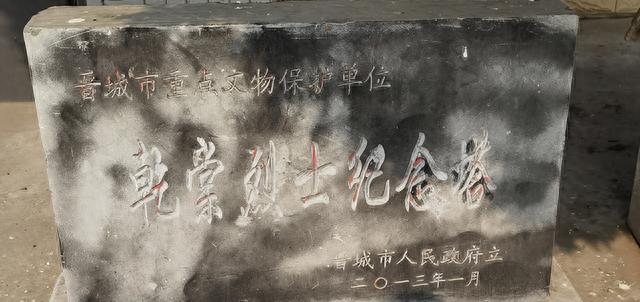 晋城市重点文物保护单位
乾崇烈士纪念塔
晋城市人民政府立
二〇一三年一月